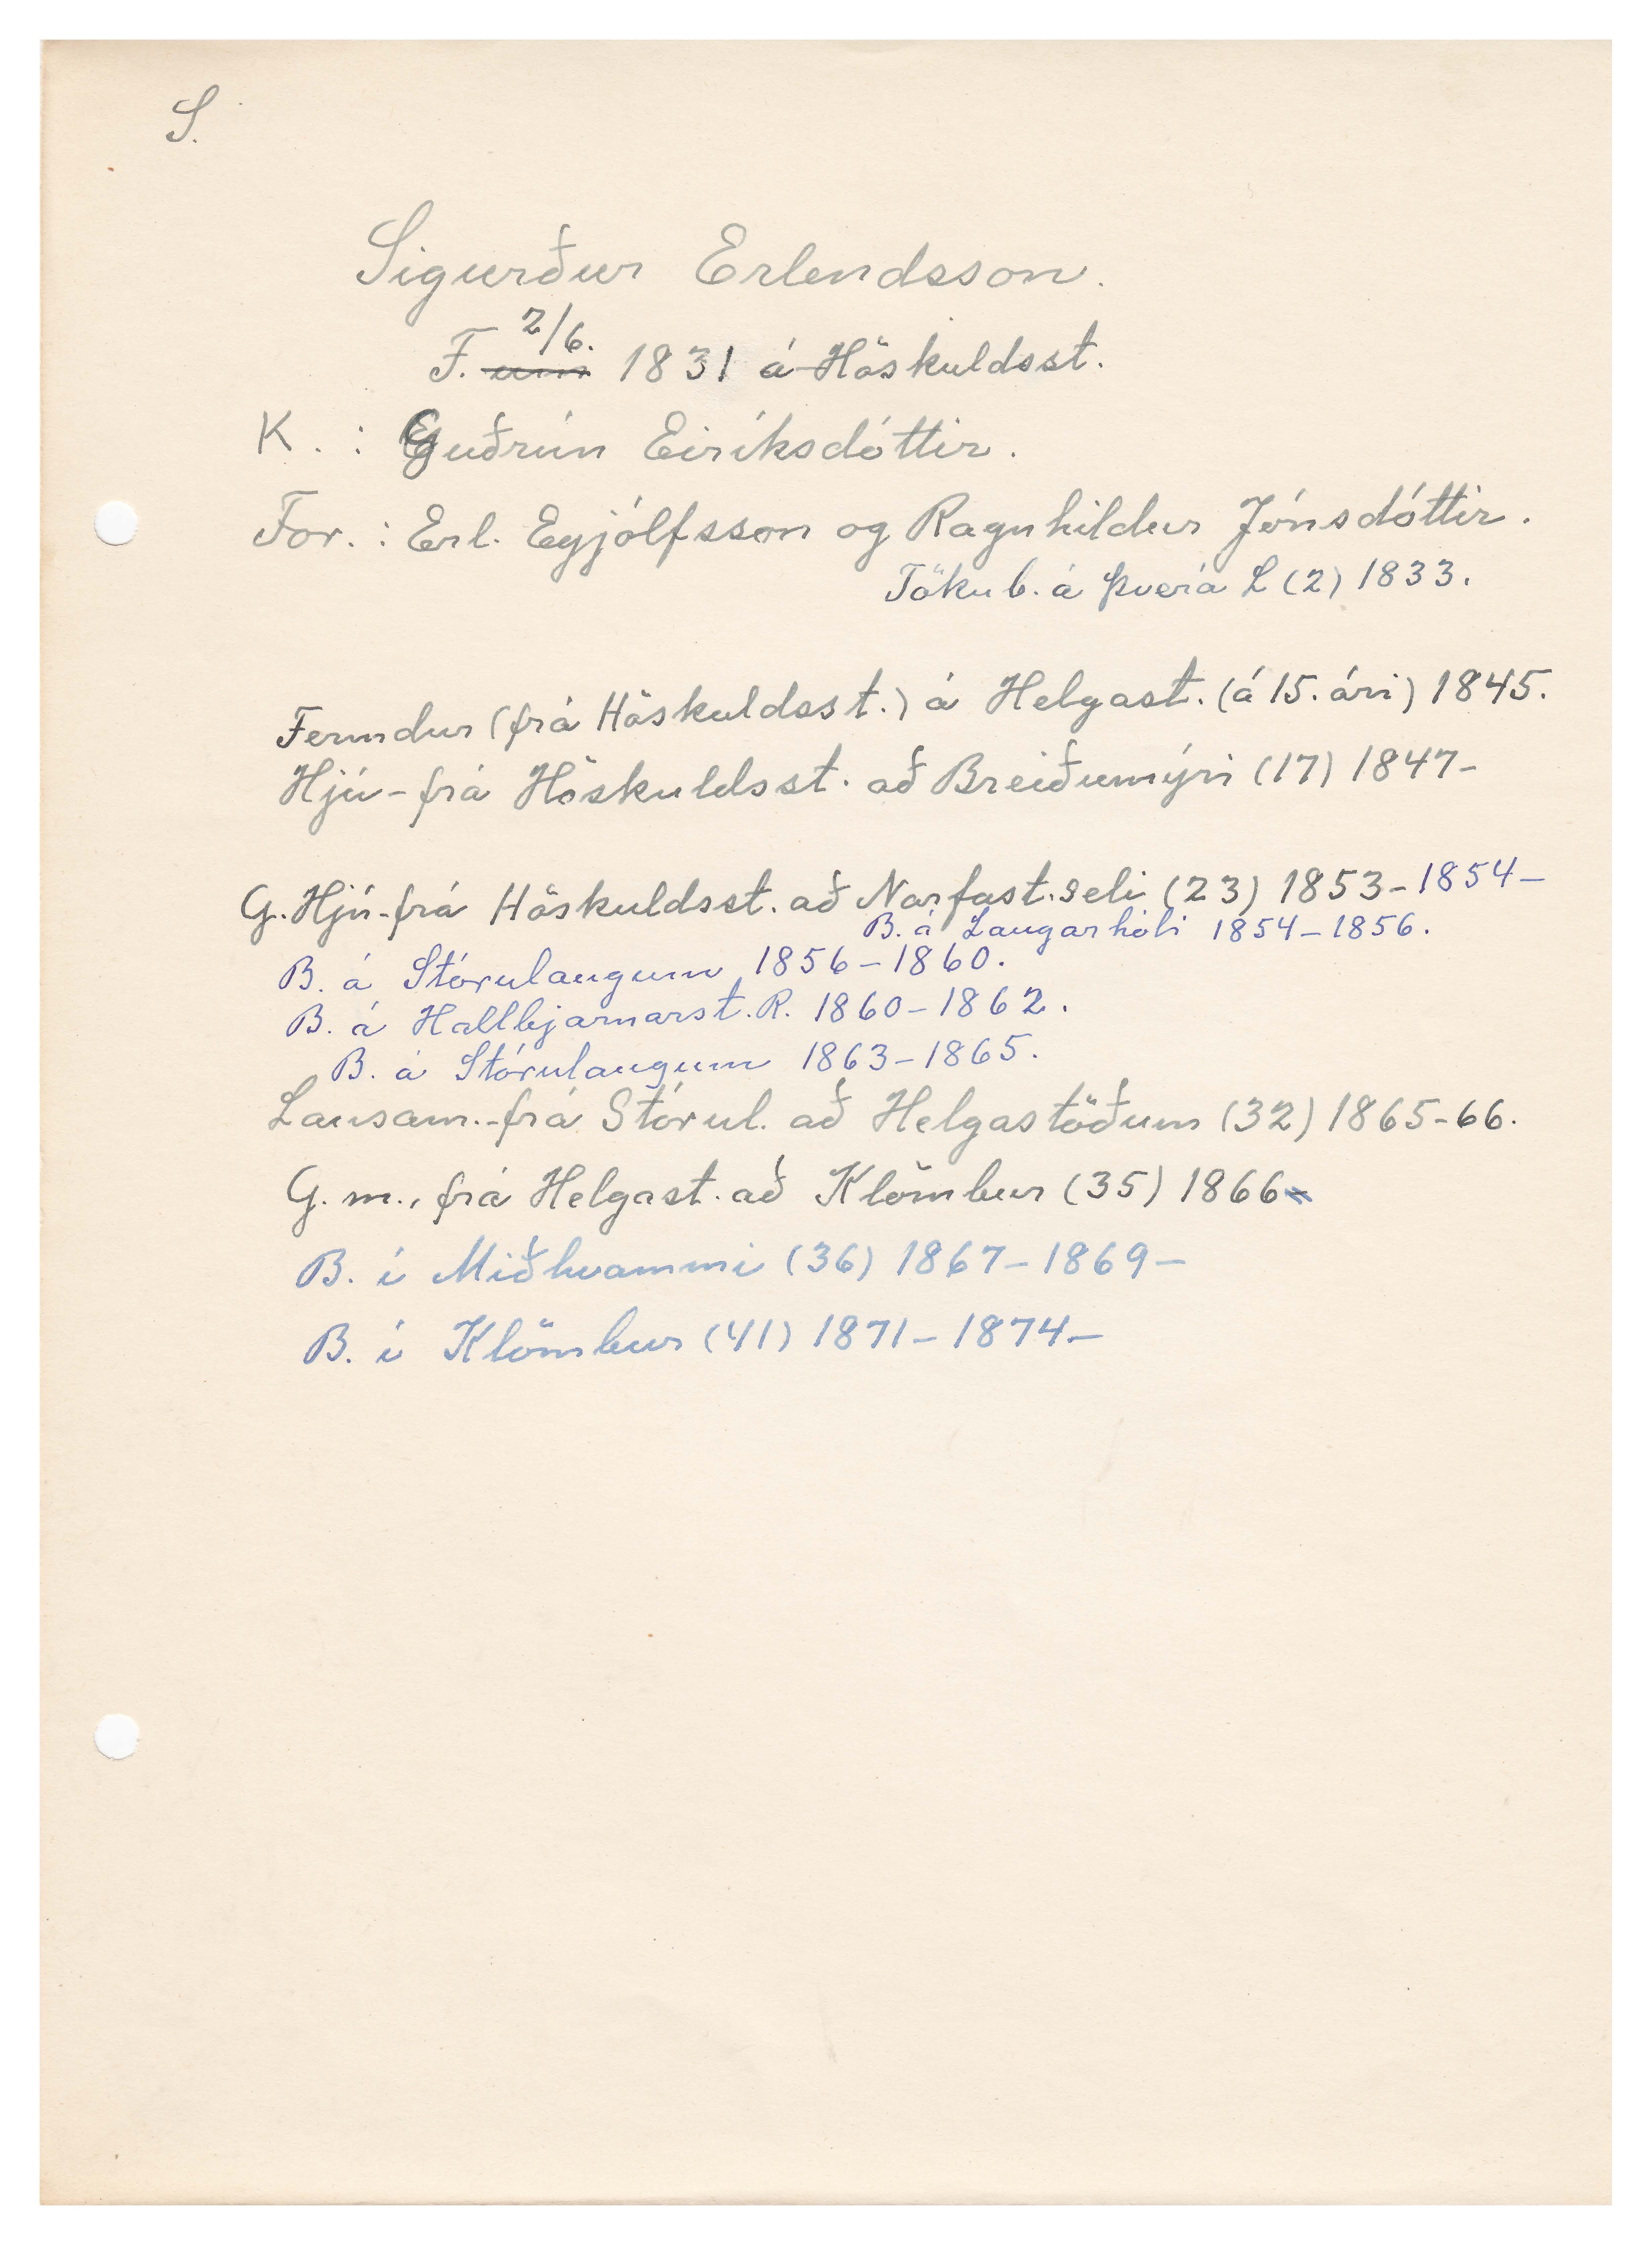 S.
Sigurður Erlendsson.
2/6.
F. um 1831 á Höskuldsst.
K. : Guðrún Eiríksdóttir.
For. : Erl. Eyjólfsson og Ragnhildur Jónsdóttir.
Tökub. á Þverá L (2) 1833.
Fermdur (frá Höskuldsst.) á Helgast. (á 15. ári) 1845.
Hjú - frá Höskuldsst. að Breiðumýri (17) 1847-
G. Hjú - frá Höskuldsst. að Narfast.seli (23) 1853-1854-
B. á Laugarhóli 1854-1856.
B. á Stórulaugum 1856-1860.
B. á Hallbjarnarst. R. 1860-1862.
B. á Stórulaugum 1863-1865.
Lausam.-frá Stórul. að Helgastöðum (32) 1865-66.
G. m., frá Helgast. að Klömbur (35) 1866-
B. í Miðhvammi (36) 1867-1869-
B. í Klömbur (41) 1871-1874-